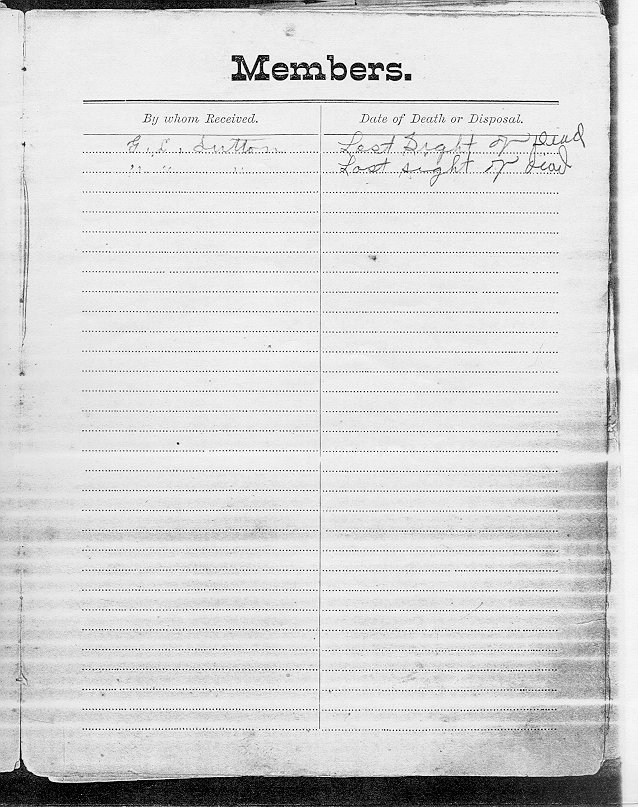 Members.
By whom Received. Date of Death or Disposal.
G. L. Sutton. Lost Sight or Dead
" " " Lost sight or Dead